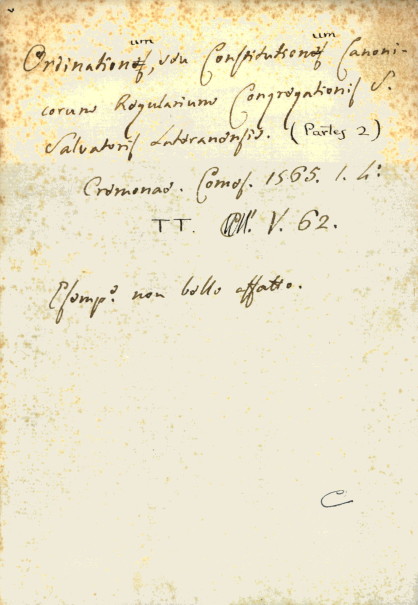 um um
Ordinationes, seu Constitutiones Canoni-
corum Regularium Congregationis S.
Salvatoris Lateranensis. (Partes 2)
Cremonae. Comes. 1565. 1. 4°
TT. V. 62.
Esemp.e non bello affatto.
C